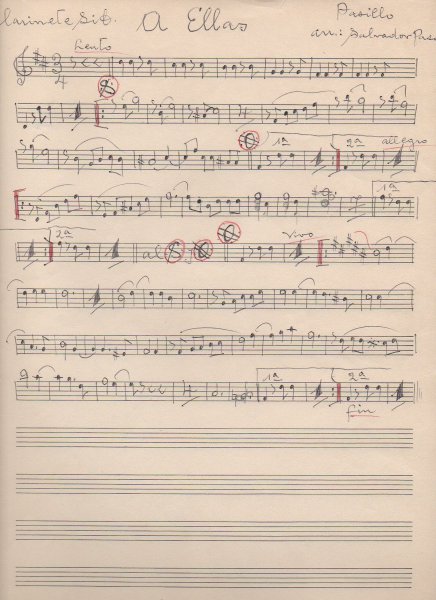 Clarinete Sib. A Ellas Pasillo
arr: Salvador
Lento
3
4
1ª 2ª allegro
1ª
2ª al vivo
1ª 2ª
fin